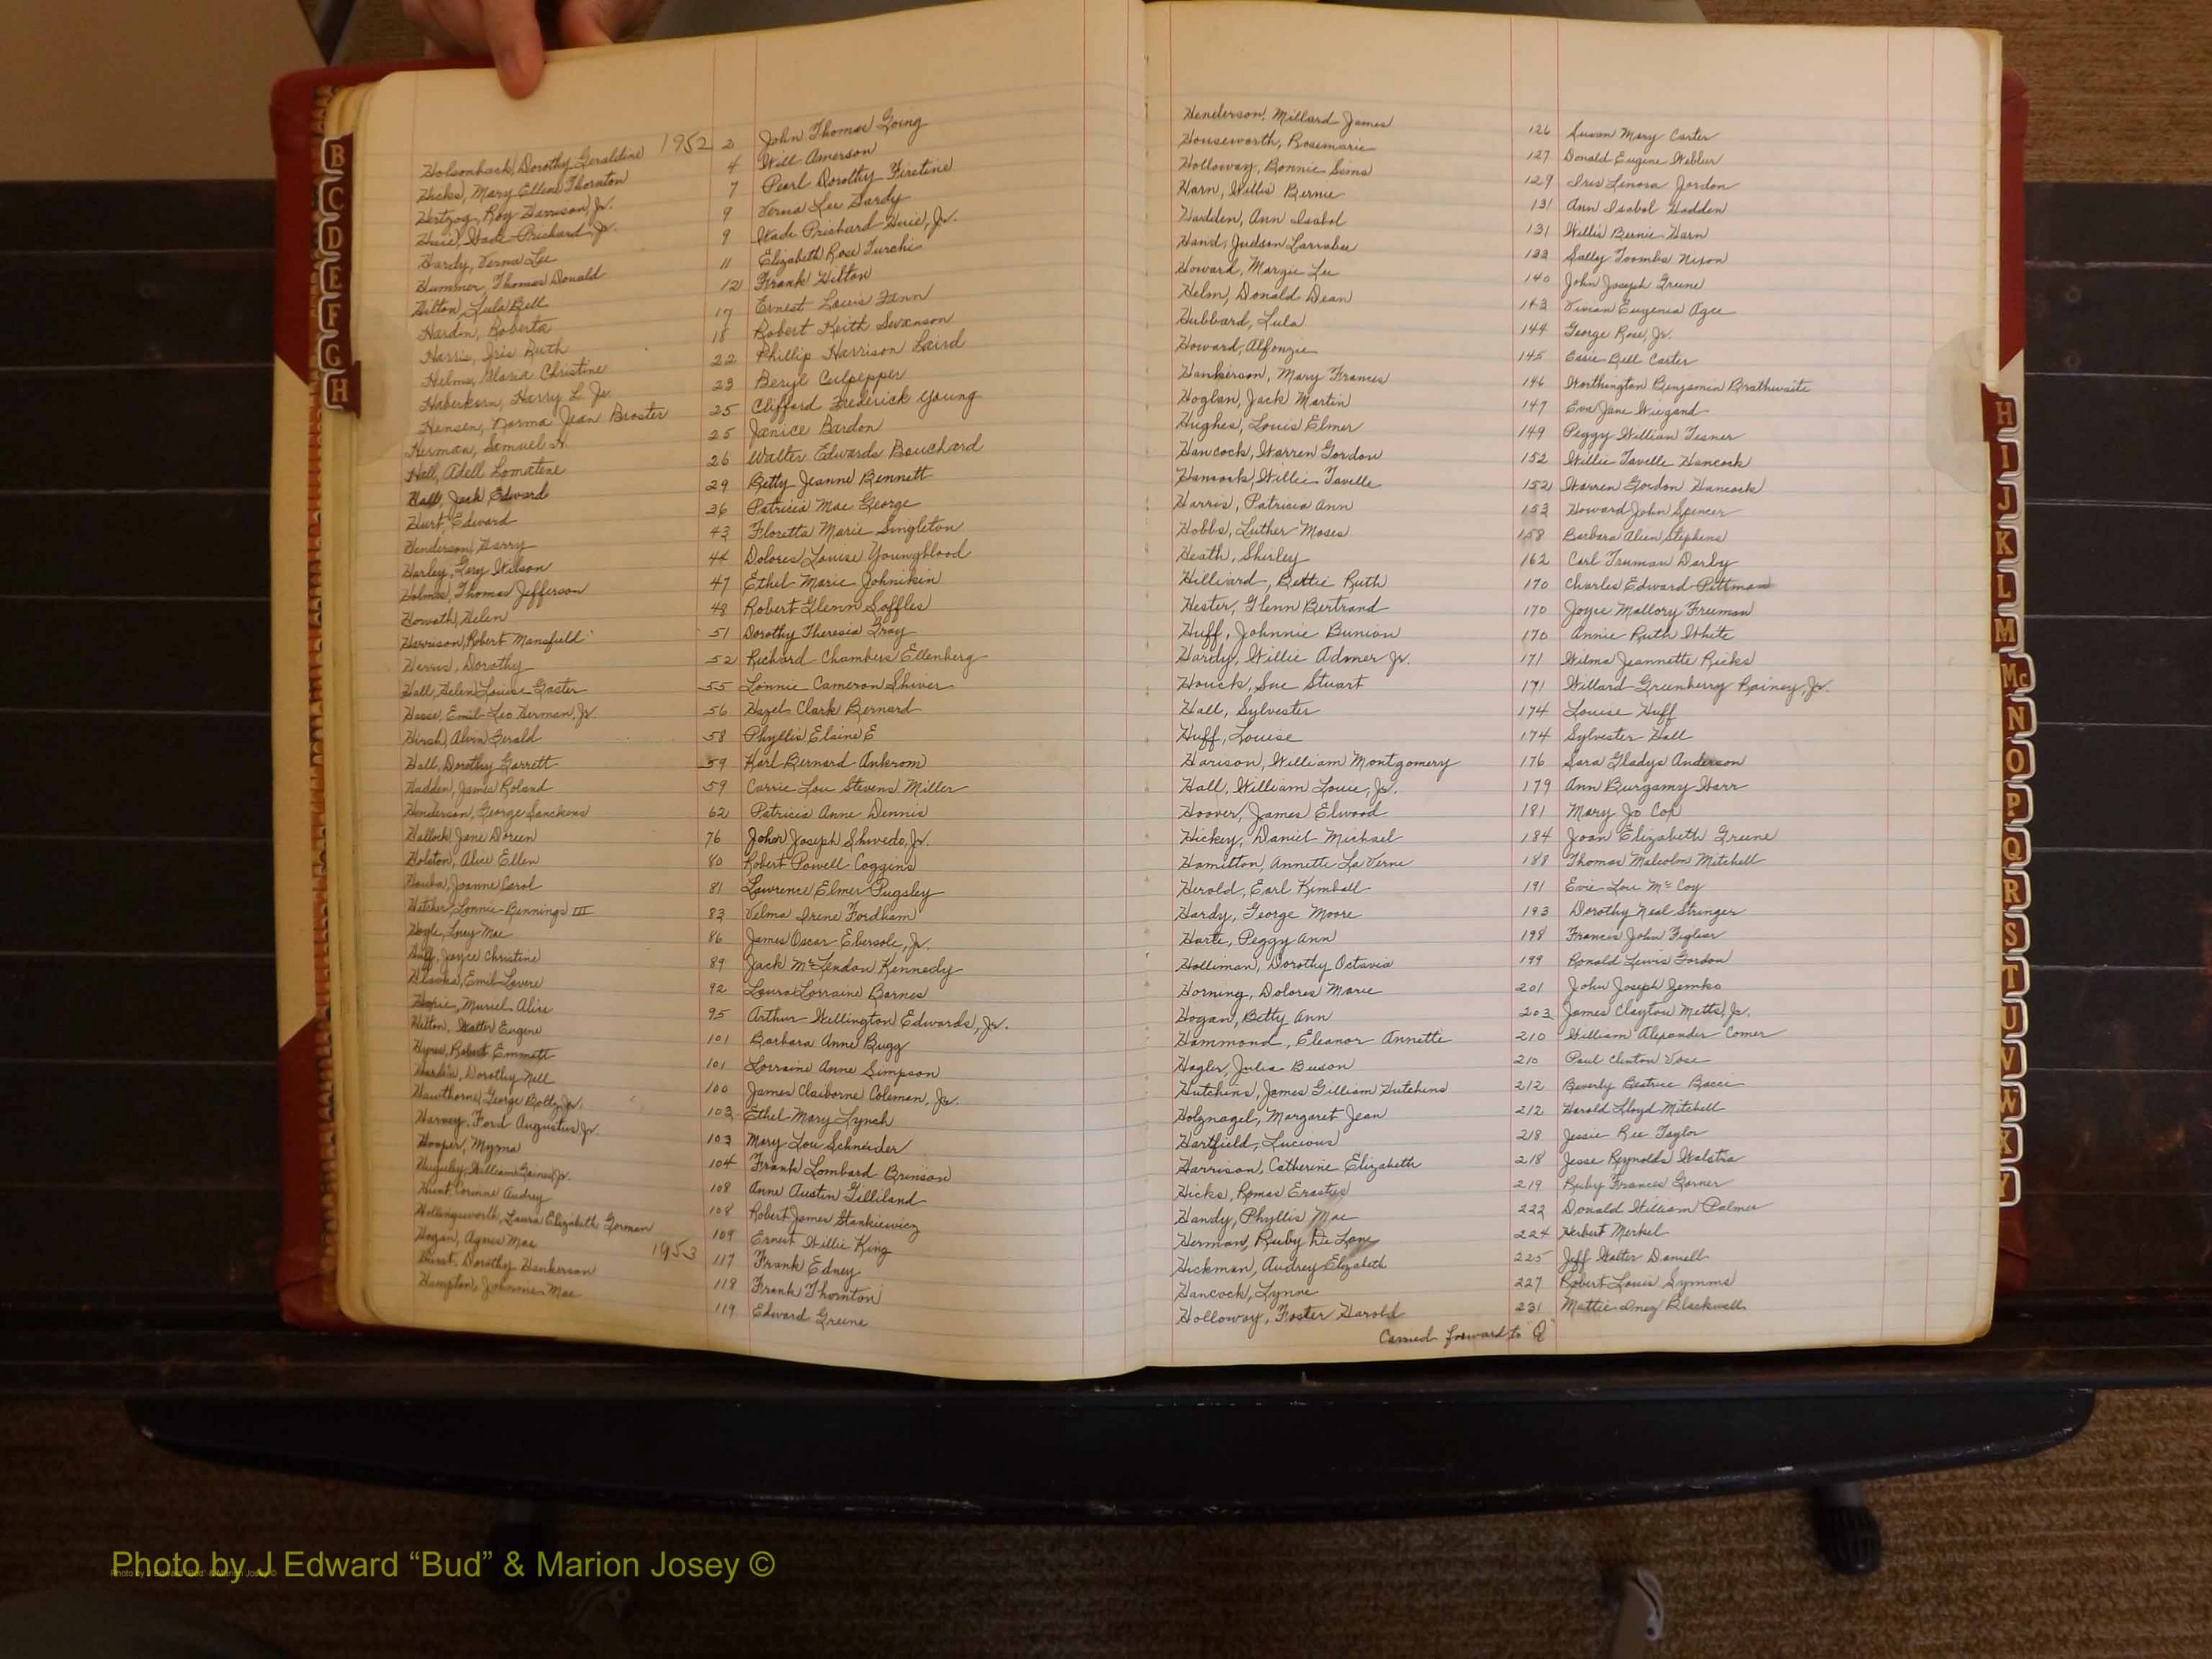 Holsonback, Dorothy Geraldine 1952 2 John Thomas Going
Hicks, Mary Ellen Thornton 4 Will Amerson
Hertzog, Roy Harrison, Jr. 7 Pearl Dorothy Firetine
Huie, Wade Prichard, Jr. 9 Verna Lee Hardy
Hardy, Verna Lee 9 Wade Prichard Huie, Jr.
Hummer, Thomas Donald 11 Elizabeth Rose Turchi
Hilton, Lula Bell 12 Frank Hilton
Hardin, Roberta 17 Ernest Lewis Fenn
Harris, Iris Ruth 18 Robert Keith Swanson
Helms, Gloria Christine 22 Phillip Harrison Laird
Haberkorn, Harry L. Jr. 23 Beryl Culpepper
Hensen, Norma Jean Broster 25 Clifford Frederick Young
Herman, Samuel H. 25 Janice Bardon
Hall, Adell Lomatene 26 Walter Edwards Bouchard
Hall, Jack Edward 29 Betty Jeanne Bennett
Hurt, Edward 36 Patricia Mae George
Henderson, Harry 43 Floretta Marie Singleton
Harley, Gary Wilson 44 Dolores Louise Youngblood
Holmes, Thomas Jefferson 47 Ethel Marie Johnikin
Howath, Helen 48 Robert Glenn Saffles
Harrison, Robert Mansfield 51 Dorothy Theresia Gray
Harris, Dorothy 52 Richard Chambers Ellenberg
Hall, Helen Louise Gaster 55 Lonnie Cameron Shiver
Hasse, Emil Leo Herman, Jr. 56 Hazel Clark Bernard
Hirsh, Alvin Gerald 58 Phyllis Elaine E
Hall, Dorothy Garrett 59 Karl Bernard Ankrom
Hadden, James Roland 59 Carrie Lou Stevens Miller
Henderson, George Sanckens 62 Patricia Anne Dennis
Hallock, Jane Doreen 76 John Joseph Shvedo, Jr.
Holston, Alice Ellen 80 Robert Powell Coggins
Houba, Joanne Carol 81 Lawrence Elmer Pugsley
Hatcher, Lonnie Bennings III 83 Velma Irene Fordham
Hogle, Lucy Mae 86 James Oscar Ebersole, Jr.
Huff, Joyce Christine 89 Jack McLendon Kennedy
Emil 92 Laura Lorraine Barnes
Muriel Alice 95 Arthur Wellington Edwards, Jr.
Hilton, Walter Eugene 101 Barbara Anne Bugg
Hynes, Robert Emmett 101 Lorraine Anne Simpson
Hardin, Dorothy Nell 100 James Claiborne Coleman, Jr.
Hawthorne, George Jr. 103 Ethel Mary Lynch
Harvey, Ford Augustus, Jr. 103 Mary Lou Schneider
Hooper, Myrna 104 Frank Lombard Brinson
Huguley, William Gaines, Jr. 108 Anne Austin Gilliland
Hunt, Corinne Audrey 108 Robert James Stankiewicz
Hollingsworth, Laura Elizabeth Gorman 109 Ernest Willie King
Hogan, Agnes Mae 1953 117 Frank Edney
Hurst, Dorothy Hankerson 118 Frank Thornton
Hampton, Johnnie Mae 119 Edward Greene
Henderson, Millard James 126 Susan Mary Carter
Houseworth, Rosemarie 127 Donald Eugene Webber
Holloway, Bonnie Sims 129 Iris Lenora Jordon
Harn, Willis Bernie 131 Ann Isabol Hadden
Hadden, Ann Isabol 131 Willis Bernie Harn
Hand, Judson Larrabee 133 Sally Toombs Nixon
Howard, Margie Lee 140 John Joseph Greene
Helm, Donald Dean 143 Vivian Eugenia Agee
Hubbard, Lula 144 George Rose, Jr.
Howard, Alfonzie 145 Essie Bell Carter
Hankerson, Mary Frances 146 Worthington Benjamin Brathwaite
Hoglan, Jack Martin 147 Eva Jane Wiegand
Hughes, Louis Elmer 149 Peggy Willian Tesner
Hancock, Warren Gordon 152 Willie Tavelle Hancock
Hancock, Willie Tavelle 152 Warren Gordon Hancock
Harris, Patricia Ann 153 Howard John Spencer
Hobbs, Luther Moses 158 Barbara Alien Stephens
Heath, Shirley 162 Carl Truman Darby
Hilliard, Bettie Ruth 170 Charles Edward Pittman
Hester, Glenn Bertrand 170 Joyce Mallory Freeman
Huff, Johnnie Bunion 170 Annie Ruth White
Hardy, Willie Admer Jr. 171 Wilma Jeannette Ricks
Houck, Sue Stuart 171 Willard Greenberry Rainey, Jr.
Hall, Sylvester 174 Louise Huff
Huff, Louise 174 Sylvester Hall
Harison, William Montgomery 176 Sara Gladys Anderson
Hall, William Louie, Jr. 179 Ann Burgamy Harr
Hoover, James Elwood 181 Mary Jo Cox
Hickey, Daniel Michael 184 Joan Elizabeth Greene
Hamilton, Annette LaVerne 188 Thomas Malcolm Mitchell
Herold, Earl Kimball 191 Evie Lou McCoy
Hardy, George Moore 193 Dorothy Neal Stringer
Harte, Peggy Ann 198 Francis John Figliar
Holliman, Dorothy Octavia 199 Ronald Lewis Gordon
Horning, Dolores Marie 201 John Joseph Zemko
Hogan, Betty Ann 203 James Clayton Metts, Jr.
Hammond, Eleanor Annette 210 William Alexander Comer
Hagler, Julia Buxon 210 Paul Clinton Vose
Hutchins, James Gilliam Hutchins 212 Beverly Beatrice Bacci
Holznagel, Margaret Jean 212 Harold Lloyd Mitchell
Hartfield, Lucious 218 Jessie Ree Taylor
Harrison, Catherine Elizabeth 218 Jesse Reynolds Walstra
Hicks, Romas Erastus 219 Ruby Frances Garner
Handy, Phyllis Mae 222 Donald William Palmer
Herman, Ruby De Lane 224 Herbert Merkel
Hickman, Audrey Elizabeth 225 Jeff Walter Daniell
Hancock, Lynne 227 Robert Louis Symms
Holloway, Foster Harold 231 Mattie Inez Blackwell
Carried forward to "Q"
B
C
D
E
F
G
H
H
I
J
K
L
M
Mc
N
O
P
Q
R
S
T
U
V
W
X
Y
Photo by J Edward “Bud” & Marion Josey ©
Photo by J Edward “Bud” & Marion Josey ©